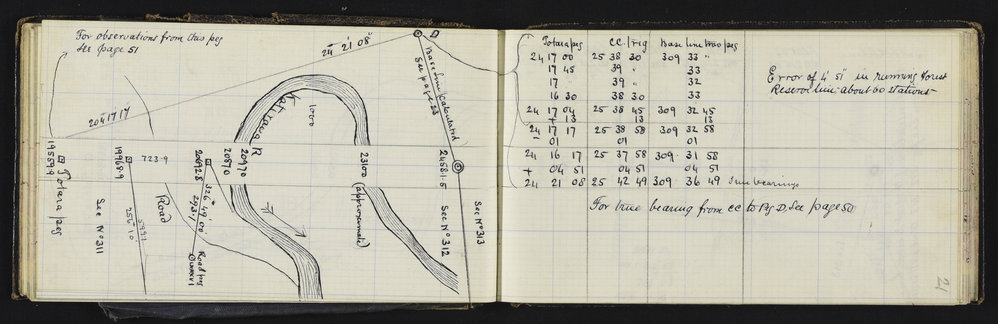 For observations from this peg
See page 51
24 21 08
D
Base line Calculated
See page 23
204 17 17
Kaituawa R
10.00
19559.9
Totara peg
19968.9
723.9
20692.8
20870
20970
23100
(approximate)
24581.5
See No 311
Road
326° 49' 00"
293.1
Road peg
See No 312
See No 313
Totara peg CC Trig Base line two pegs
24 17 00 25 38 30 309 33 "
17 45 39 " 33
17 39 " 32
16 30 38 30 33
24 17 04 25 38 45 309 32 45
+ 13 13 13
24 17 17 25 38 58 309 32 58
- 01 01 01
24 16 17 25 37 58 309 31 58
+ 04 51 04 51 04 51
24 21 08 25 42 49 309 36 49 True bearings
For true bearing from CC to Peg D. See page 50
Error of 4' 51" in running forest
Reserve line about 60 stations
21